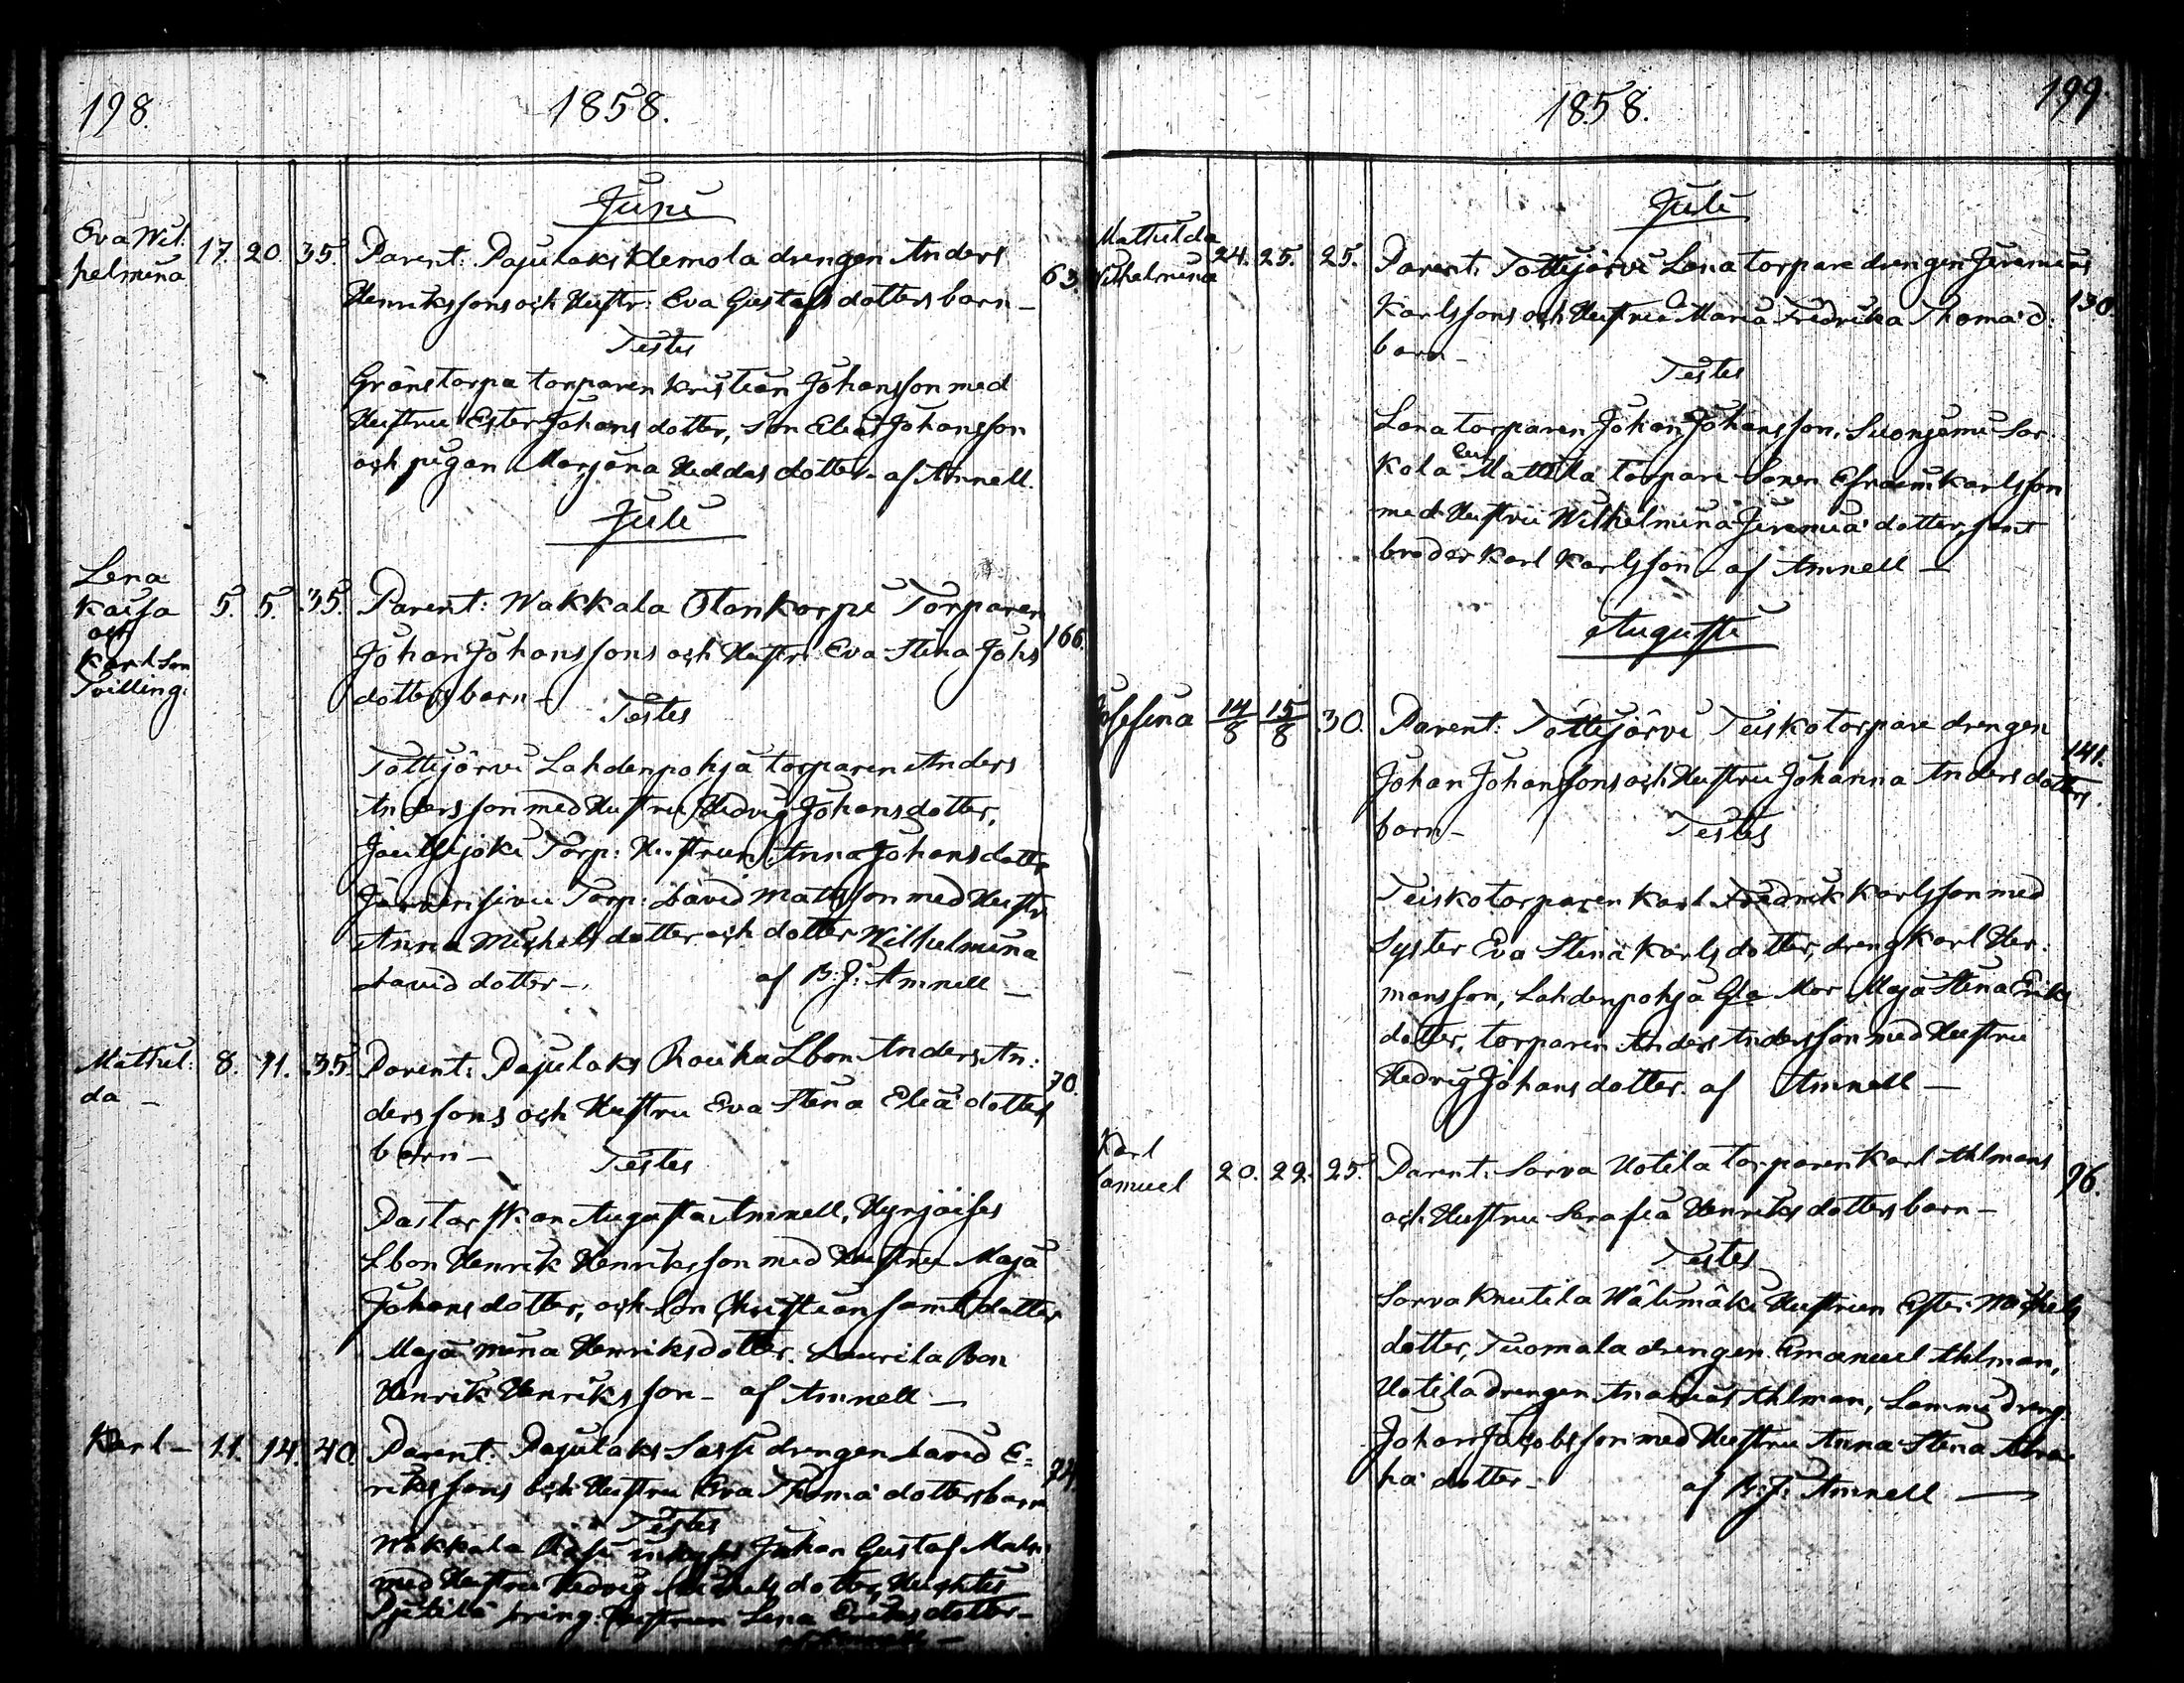 198.
1858.
Juni
Eva Wil:
helmina
17. 20. 35.
Parent: Pajulaks Klemola drengen Anders
Henrikssons och Hustr: Eva Gustafsdotters barn –
63.
Testes
Gränstorpa torparen Kristian Johansson med
Hustru Ester Johansdotter, Son Elias Johansson
och pigan Marjana Heddas dotter – af Amnell.
Juli
Lena
Kaisa
och
Karl Son
Tvilling:
5. 5. 35.
Parent: Wakkala Torparen
Johan Johanssons och Hustr: Eva Stina Johs
dotters barn –
166.
Testes
Tottijärvi Lahdenpohja torparen Anders
Andersson med Hustru Hedvig Johansdotter,
Joutsijoki Torp: Hustrun Anna Johansdotter
Järvensivu Torp: David Mattsson med Hustr:
Anna Michelsdotter och dotter Wilhelmina
Daviddotter –
af B: J: Amnell –
Mathil:
da –
8. 11. 35.
Parent: Pajulaks Rouka Lbon Anders An:
derssons och Hustru Eva Stina Eliædotters
barn –
70.
Testes
Pastorskan Augusta Amnell, Hynjäises
Lbon Henrik Henriksson med Hustru Maja
Johansdotter, och Son Christian samt dotter
Maja mina Henriksdotter. Laurila Bon
Henrik Henriksson – af Amnell –
Karl –
11. 14. 40.
Parent: Pajulaks Sassi drengen David E=
rikssons och Hustru Eva Thomædotters barn
74
Testes
Wakkala inhyses Johan Gustaf Malm
med Hustru Hedvig Michelsdotter,
dräng: Hustrun Lena Eriksdotter –
1858.
199.
Juli
Mathilda
Wilhelmina
24. 25. 25.
Parent: Tottijärvi Lana torpare drengen Jeremias
Karlssons och Hustru Maria Fredrika Thomæd:
barn –
130
Testes
Lana torparen Johan Johansson, Suonjemi Sar
kola Mattila torpare Sonen Efraim Karlsson
med Hustru Wilhelmina Jeremiædotter, samt
broder Karl Karlsson – af Amnell –
Augusti
Josefina
14/8 15/8 30.
Parent: Tottijärvi Teisko torpare drengen
Johan Johanssons och Hustru Johanna Andersdotters
barn –
141.
Testes
Teisko torparen Karl Fredrik Karlsson med
Syster Eva Stina Karlsdotter, dreng Karl Her:
mansson, Lahdenpohja Gla Mor Maja Stina Eriks
dotter, torparen Anders Andersson med Hustru
Hedvig Johansdotter. af Amnell –
Karl
Samuel
20. 22. 25.
Parent: Sarva Uotila torparen Karl Ahlmans
och Hustru Serafia Henriksdotters barn –
96.
Testes
Sarva Knutila Wälimäki Hustrun Ester Michels
dotter, Tuomala drengen Emanuel Ahlman,
Uotila drengen Ananias Ahlman, Lammi dreng
Johan Jacobsson med Hustru Anna Stina Abra
ha dotter –
af B: J: Amnell –